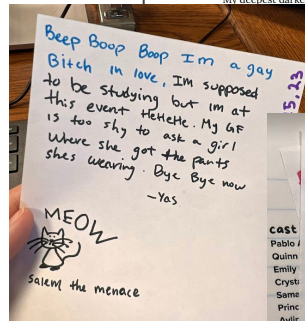 My deepest darke
Beep Boop Boop Im a gay
Bitch in love, Im supposed
to be studying but im at
this event HeHeHe. My GF
is too shy to ask a girl
where she got the pants
shes wearing. Bye Bye now
-Yas
MEOW
Salem the menace
5.23
cast
Pablo
Quinn
Emily
Cryst
Same
Princ